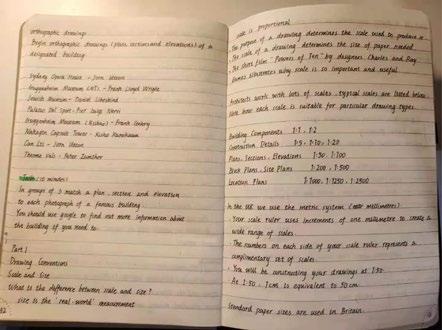 orthographic drawings
Begin orthographic drawings (plans, sections and elevations) of a
designated building
Sydney Opera House - Jorn Utzon
Guggenheim Museum (NY) - Frank Lloyd Wright
Jewish Museum - Daniel Libeskind
Palazzo Del Sport - Pier Luigi Nervi
Guggenheim Museum (Bilbao) - Frank Gehry
Nakagin Capsule Tower - Kisho Kurokawa
Can Lis - Jorn Utzon
Therme Vals - Peter Zumthor
(10 minutes)
In groups of 3 match a plan, section and elevation
to each photograph of a famous building.
You should use google to find out more information about
the building if you need to.
Part 1
Drawing Conventions
Scale and Size
What is the difference between scale and size?
size is the 'real-world' measurement
scale is proportional
The purpose of a drawing determines the scale used to produce it
The scale of a drawing determines the size of paper needed.
The short film "Powers of Ten" by designers Charles and Ray
Eames illustrates why scale is so important and useful
Architects work with lots of scales, typical scales are listed below
Note how each scale is suitable for particular drawing types.
Building Components 1:1, 1:2
Construction Details 1:5, 1:10, 1:20
Plans, Sections, Elevations 1:50, 1:100
Block Plans, Site Plans 1:200, 1:500
Location Plans 1:1000, 1:1250, 1:2500
In the UK we use the metric system (millimetres)
· Your scale ruler uses increments of one millimetre to create a
wide range of scales.
· The numbers on each side of your scale ruler represents a
complimentary set of scales.
· You will be constructing your drawings at 1:50.
At 1:50, 1cm is equivalent to 50cm.
Standard paper sizes are used in Britain.